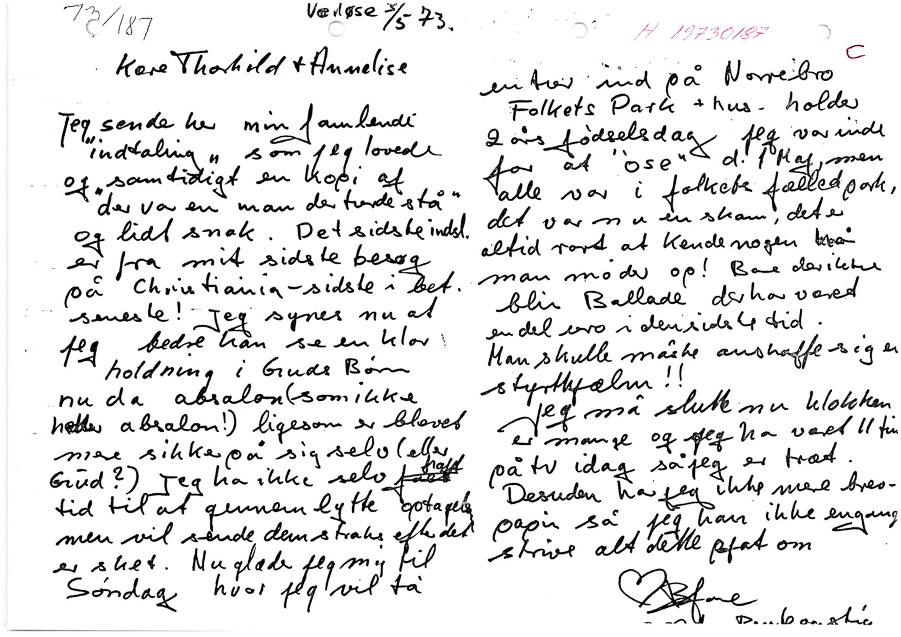 73/187
Værløse 3/5 73.
H 19730187
C
Kære Thorkild + Annelise
Jeg sender her min famlende
"indtaling" som jeg lovede
og samtidigt en kopi af
"der var en man der turde stå"
og lidt snak. Det sidste indsl.
er fra mit sidste besøg
på Christiania - sidste i bet.
seneste! Jeg synes nu at
jeg bedre kan se en klar
holdning i Guds Børn
nu da absalon (som ikke
hedder absalon!) ligesom er blevet
mere sikker på sig selv (eller
Gud?) Jeg har ikke selv haft
tid til at gennemlytte optagelse
men vil sende dem straks efter det
er sket. Nu glæder jeg mig til
Søndag hvor jeg vil tå
en tur ind på Nørrebro
Folkets Park + hus - holder
2 års fødselsdag jeg var inde
for at "ose" d. 1 Maj, men
alle var i folkets fælledpark,
det var nu en skam, det er
altid rart at kende nogen
man møder op! Bare der ikke
blir Ballade der har været
en del uro i den sidste tid.
Man skulle måske anskaffe sig en
styrthjælm!!
Jeg må slutte nu klokken
er mange og jeg har været 11 tim
på tv idag så jeg er træt.
Desuden har jeg ikke mere brev-
papir så jeg kan ikke engang
skrive alt dette pjat om